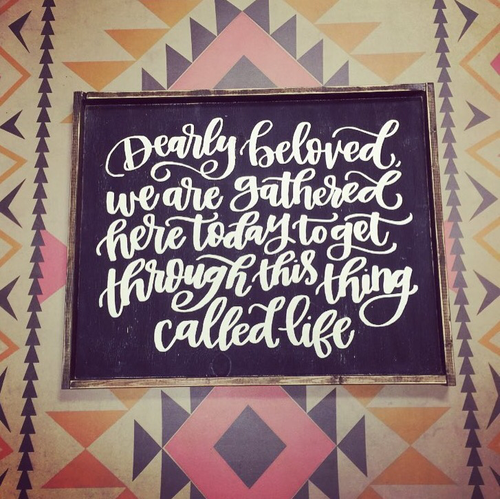 Dearly beloved,
we are gathered
here today to get
through this thing
called life